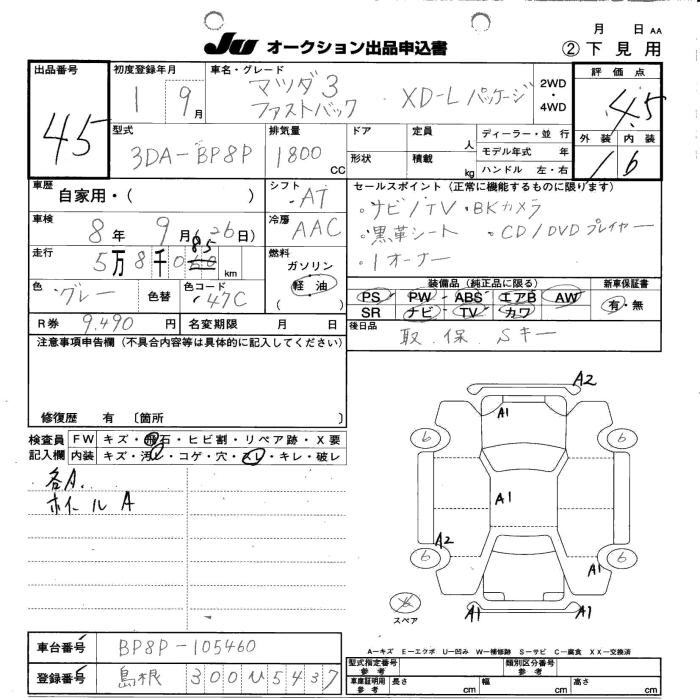 月 日 AA
JU オークション出品申込書 ②下見用
出品番号 45
初度登録年月 1 9月
車名・グレード マツダ3 ファストバック XD-L パッケージ
2WD・4WD
評価点 4.5
外装 内装
1 6
型式 3DA-BP8P
排気量 1800 CC
ドア
形状
定員 人
積載 kg
ディーラー・並行
モデル年式 年
ハンドル 左・右
車歴 自家用・( )
シフト AT
セールスポイント (正常に機能するものに限ります)
・ナビ/TV ・BKカメラ
・黒革シート ・CD/DVDプレイヤー
・1オーナー
車検 8年 9月(26日)
冷房 AAC
走行 5万8千085km
燃料 ガソリン
軽油
( )
色 グレー 色替
色コード 47C
装備品 (純正品に限る) 新車保証書
PS PW ABS エアB AW 有・無
SR ナビ TV カワ
R券 9,490円 名変期限 月 日
後日品 取.保.Sキー
注意事項申告欄 (不具合内容等は具体的に記入してください)
修復歴 有 〔箇所 〕
検査員記入欄
FW キズ・飛石・ヒビ割・リペア跡・X要
内装 キズ・汚レ・コゲ・穴・スレ・キレ・破レ
各A.
ホイールA
A2
A1
6 6
A1
A2
6 6
A1
スペア
A1 A1
車台番号 BP8P-105460
登録番号 島根 300 ひ5437
A－キズ E－エクボ U－凹み W－補修跡 S－サビ C－腐食 XX－交換済
型式指定番号 参考
類別区分番号 参考
車庫証明用 参考 長さ cm 幅 cm 高さ cm